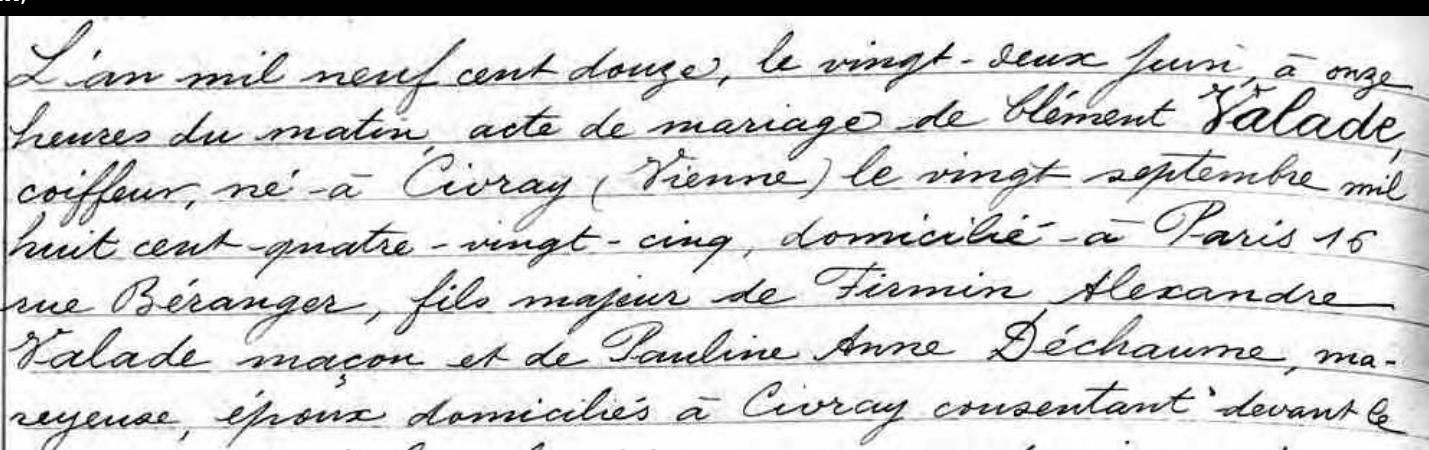 L'an mil neuf cent douze, le vingt-deux juin, à onze
heures du matin, acte de mariage de Clément Valade,
coiffeur, né à Civray (Vienne) le vingt septembre mil
huit cent-quatre-vingt-cinq, domicilié à Paris 16
rue Béranger, fils majeur de Firmin Alexandre
Valade maçon et de Pauline Anne Déchaume, ma-
reyeuse, époux domiciliés à Civray consentant devant le